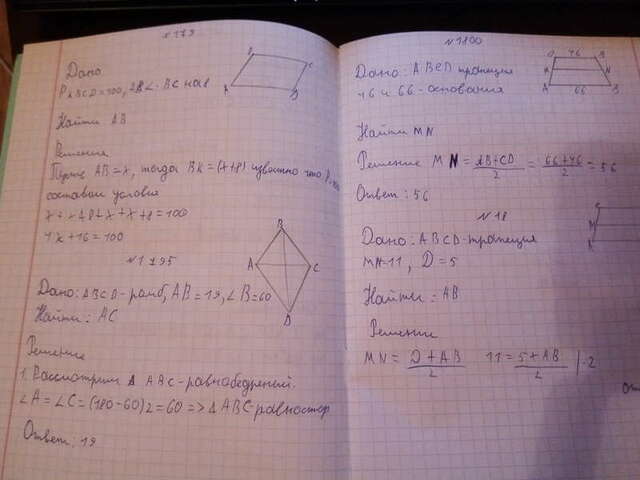 № 179
Дано
PABCD=100, AB < BC на 8
Найти AB
Решения
Пусть AB=x, тогда BK=(x+8) известно что
составим условия
x+x+8+x+x+8=100
4x+16=100
B
C
A
D
№1195
Дано: ABCD-ромб, AB=19, ∠B=60
Найти: AC
B
A
C
D
Решение
1. Рассмотрим Δ ABC-равнобедреней.
∠A=∠C=(180-60)2=60 => ΔABC-равностор
Ответ: 19
№1800
Дано: ABCD трапеция
46 и 66-основания
46
B
M
N
A
D
66
Найти MN
Решение MN = AB+CD/2 = 66+46/2 = 56
Ответ: 56
№18
Дано: ABCD-трапеция
MN-11, D=5
Найти: AB
Решение
MN = D+AB/2 11=5+AB/2 |·2